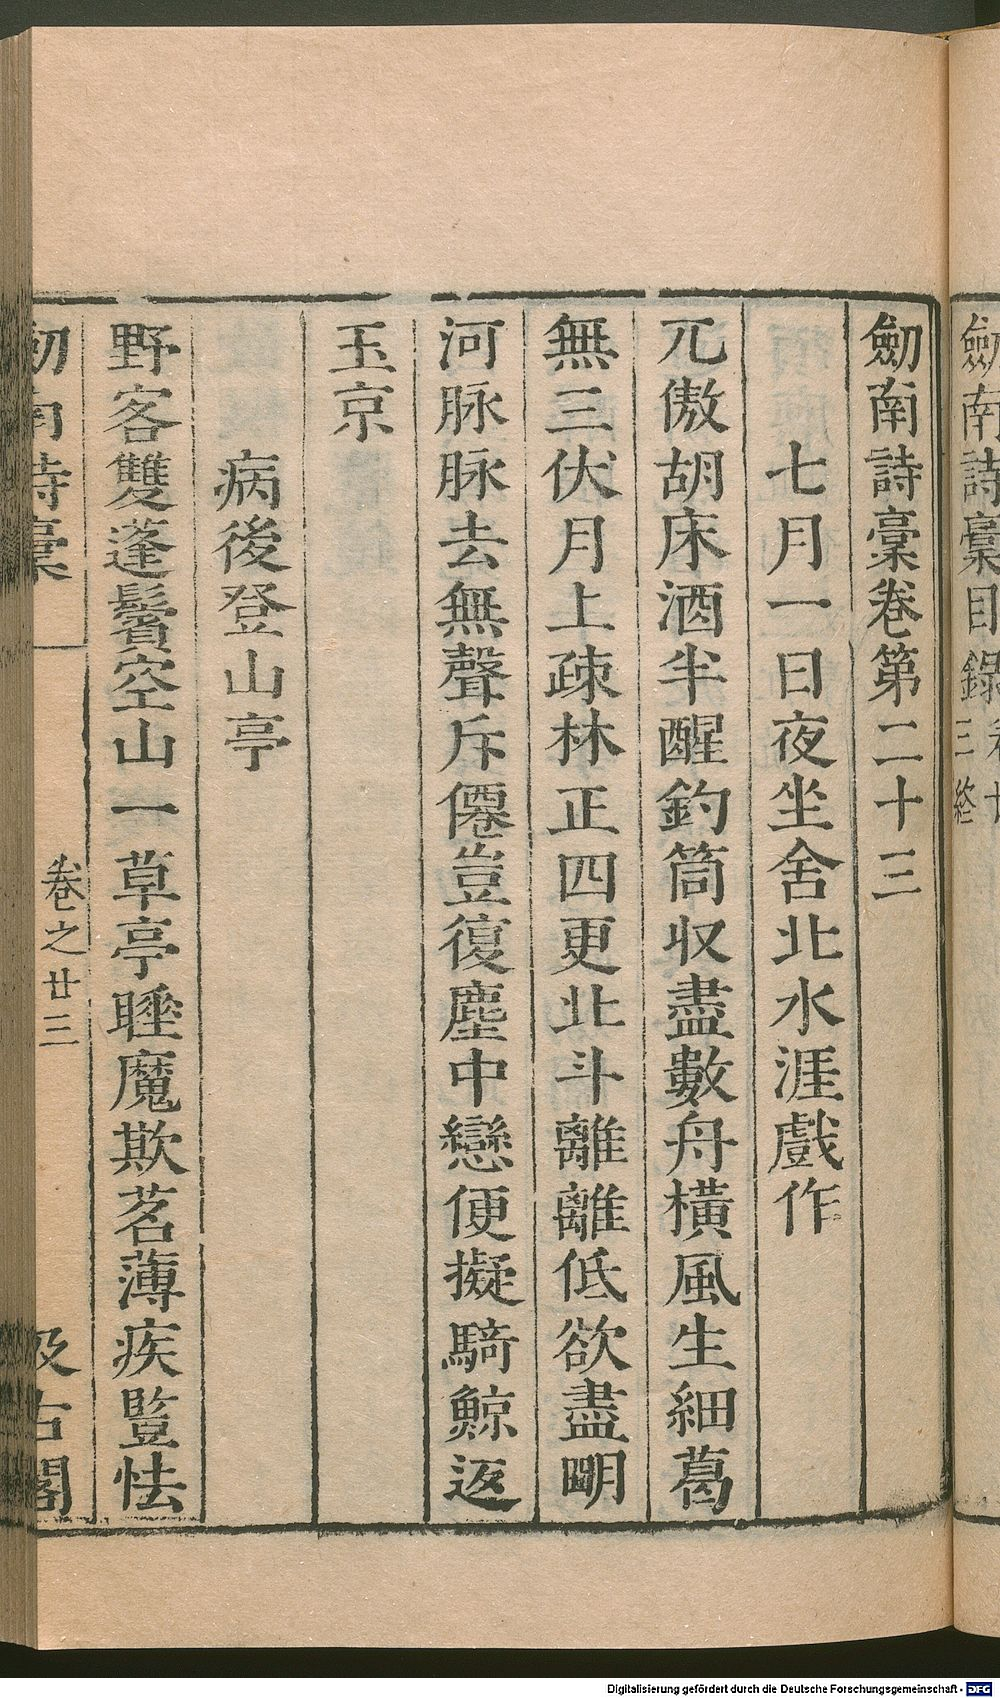 劒南詩藁目錄
三終
劒南詩藁卷第二十三
七月一日夜坐舍北水涯戲作
兀傲胡床酒半醒釣筒収盡數舟橫風生細葛
無三伏月上疎林正四更北斗離離低欲盡明
河脉脉去無聲斥僊豈復塵中戀便擬騎鯨返
玉京
病後登山亭
野客雙蓬鬢空山一草亭睡魔欺茗薄疾豎怯
劒南詩藁
卷之廿三
汲古閣
Digitalisierung gefördert durch die Deutsche Forschungsgemeinschaft - DFG